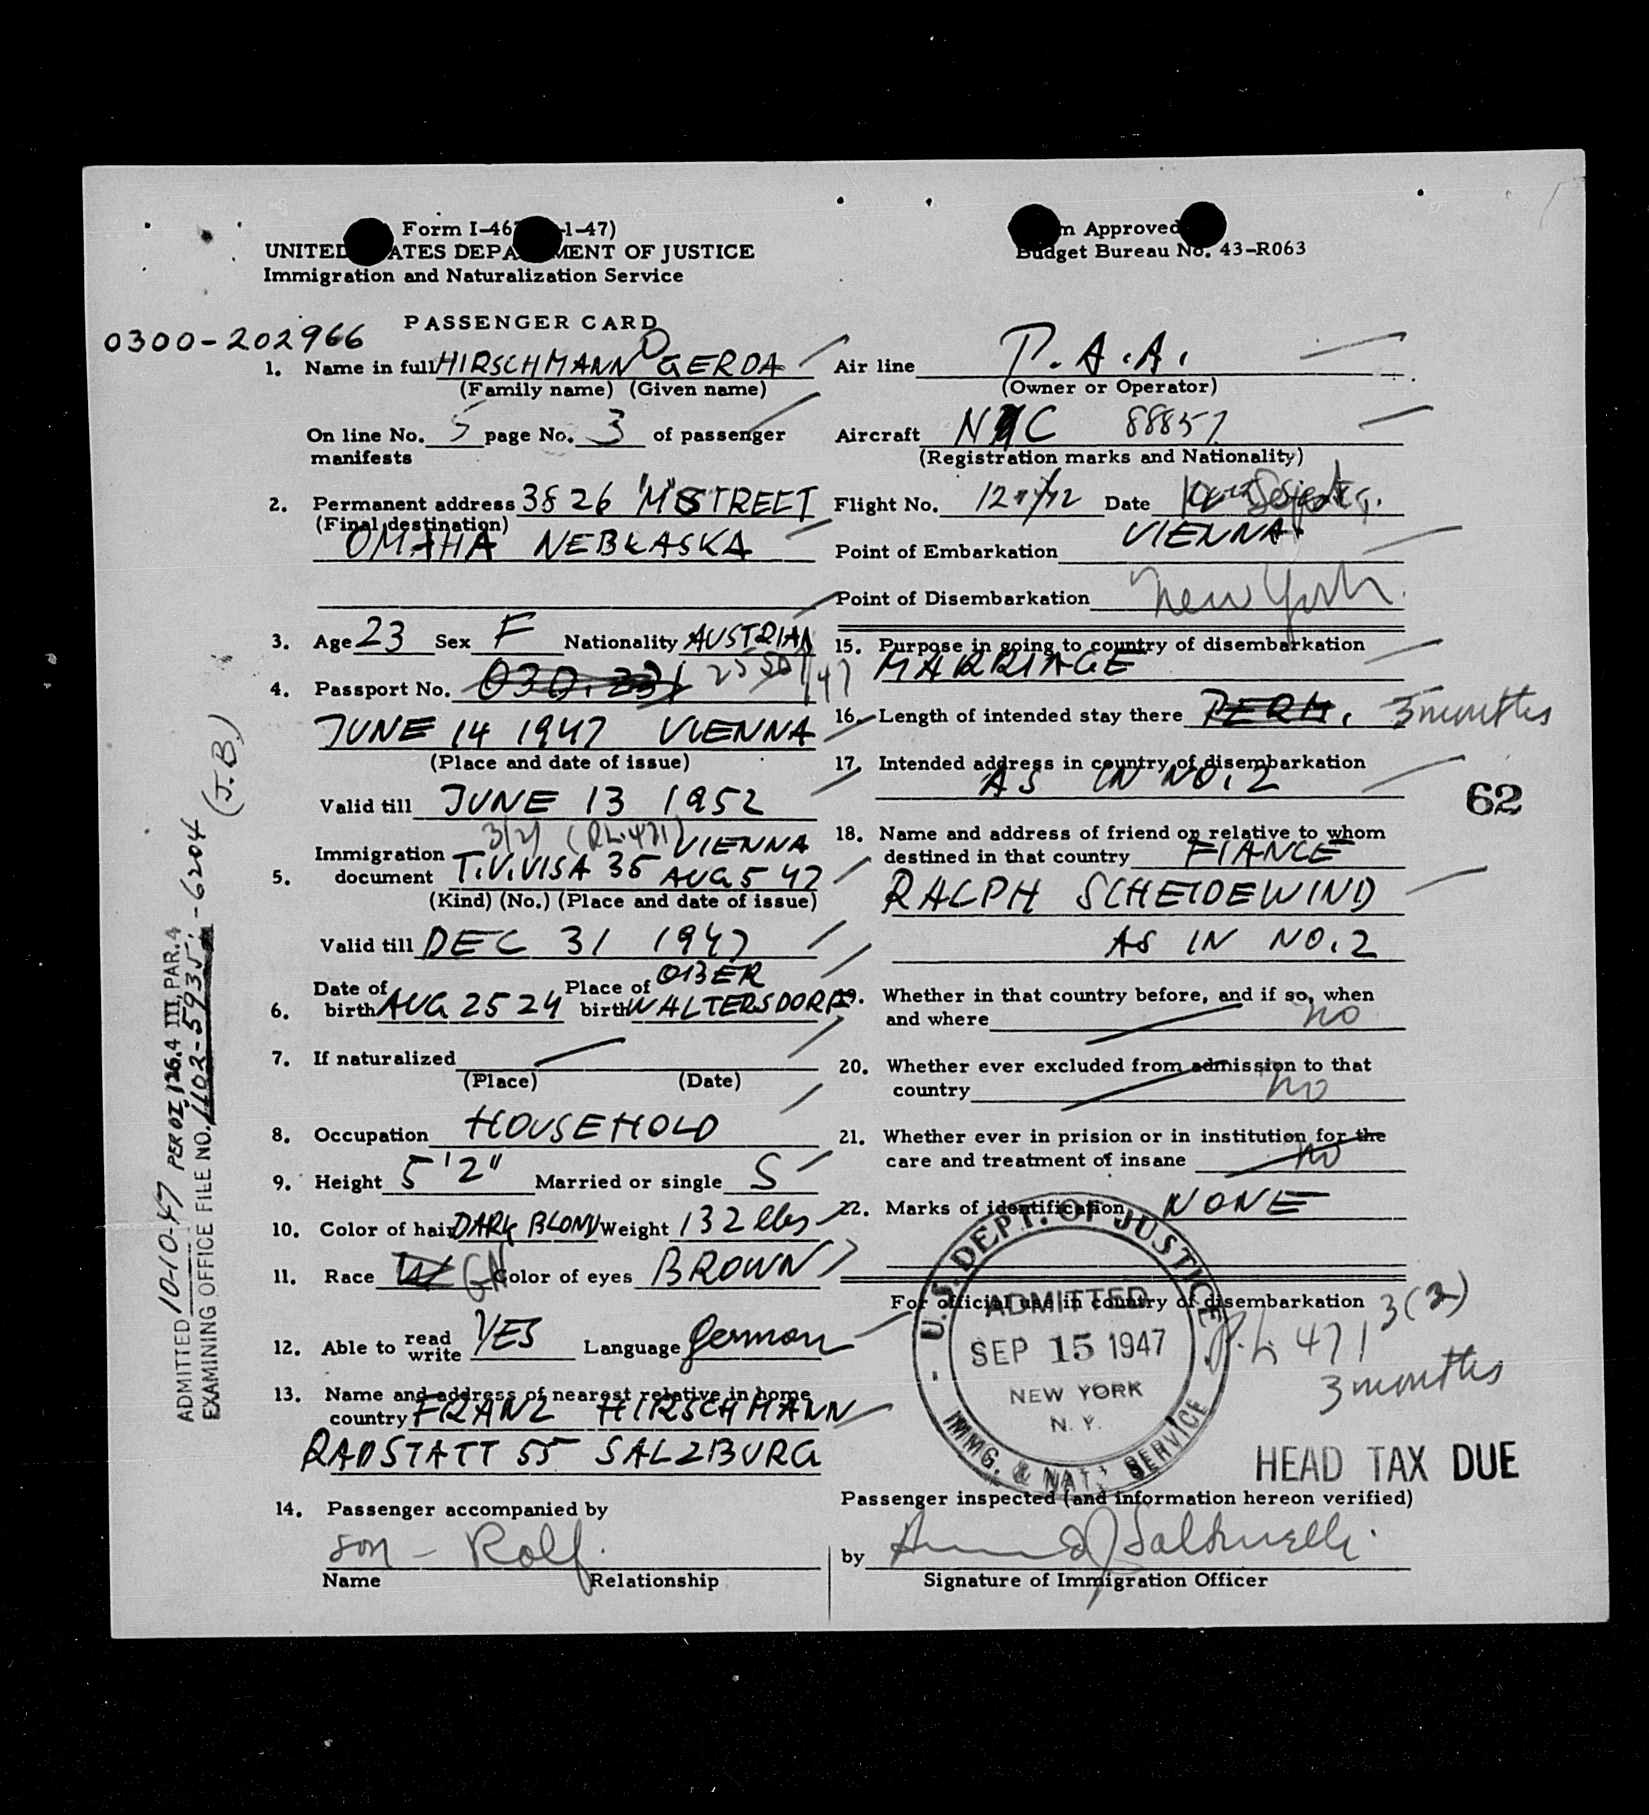 Form I-46 1-47)
UNITED ATES DEPA MENT OF JUSTICE
Immigration and Naturalization Service
m Approved
Budget Bureau No. 43-R063
PASSENGER CARD
0300-202966
1. Name in full HIRSCHMANN GERDA
(Family name) (Given name)
On line No. 5 page No. 3 of passenger
manifests
2. Permanent address 3826 "M" STREET
(Final destination)
OMAHA NEBRASKA
3. Age 23 Sex F Nationality AUSTRIAN
4. Passport No. 030.231
JUNE 14 1947 VIENNA
(Place and date of issue)
Valid till JUNE 13 1952
3(2) (P.L. 471) VIENNA
Immigration
5. document T.V. VISA 35 AUG 5 47
(Kind) (No.) (Place and date of issue)
Valid till DEC 31 1947
Date of Place of OBER
6. birth AUG 25 24 birth WALTERSDORF
7. If naturalized
(Place) (Date)
8. Occupation HOUSEHOLD
9. Height 5'2" Married or single S
10. Color of hair DARK BLOND Weight 132 lbs
11. Race W Color of eyes BROWN
12. Able to read write YES Language German
13. Name and address of nearest relative in home
country FRANZ HIRSCHMANN
RADSTATT 55 SALZBURG
14. Passenger accompanied by
son - Rolf.
Name Relationship
Air line P.A.A.
(Owner or Operator)
Aircraft NC 88857
(Registration marks and Nationality)
Flight No. Date
Point of Embarkation VIENNA
Point of Disembarkation New York
15. Purpose in going to country of disembarkation
MARRIAGE
16. Length of intended stay there PERM. 3 months
17. Intended address in country of disembarkation
AS IN NO. 2
62
18. Name and address of friend or relative to whom
destined in that country FIANCE
RALPH SCHEIDEWIND
AS IN NO. 2
19. Whether in that country before, and if so, when
and where no
20. Whether ever excluded from admission to that
country no
21. Whether ever in prision or in institution for the
care and treatment of insane no
22. Marks of identification NONE
For official use in country of disembarkation
U.S. DEPT. OF JUSTICE
ADMITTED
SEP 15 1947
NEW YORK
N. Y.
IMMG. & NAT. SERVICE
P.L. 471 3(2)
3 months
HEAD TAX DUE
Passenger inspected (and information hereon verified)
by
Signature of Immigration Officer
ADMITTED 10-10-47 PER OI 126.4 III, PAR. 4
EXAMINING OFFICE FILE NO. 1102-5935. -6204 (J.B.)